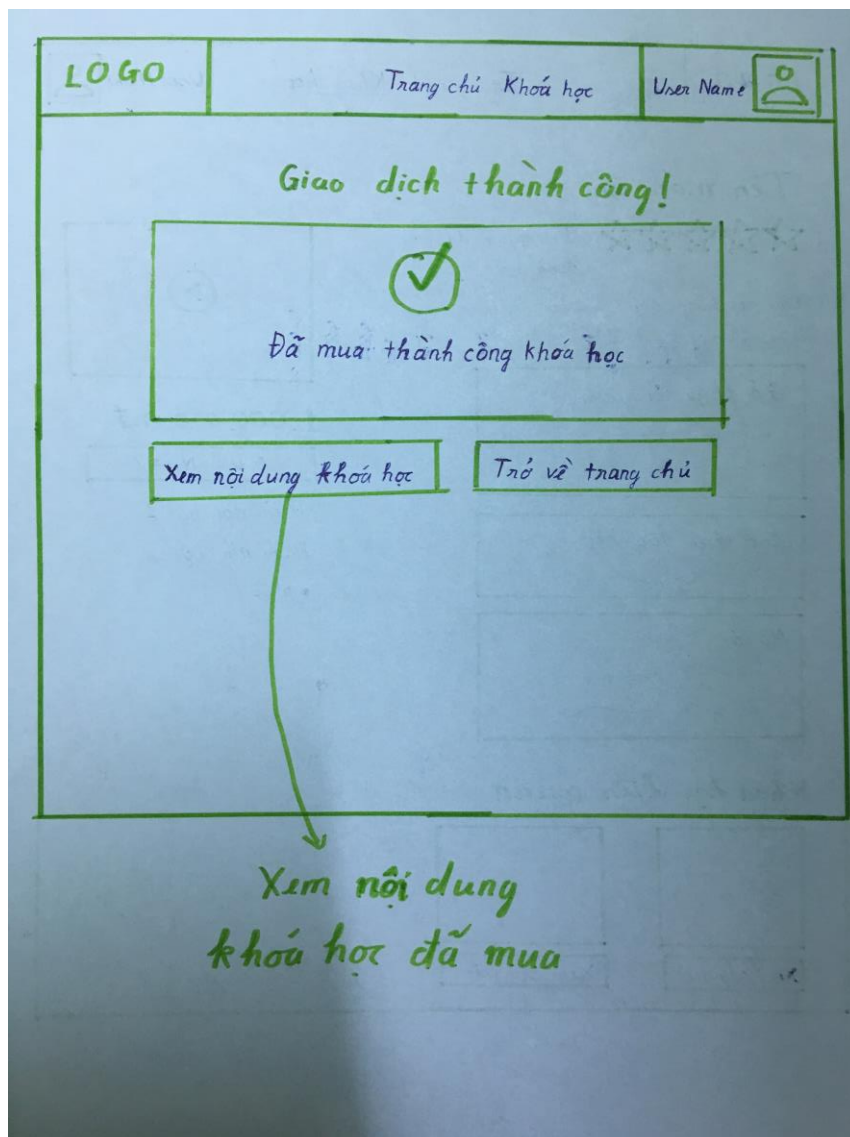 LOGO
Trang chủ Khoá học
User Name
Giao dịch thành công!
Đã mua thành công khoá học
Xem nội dung khoá học
Trở về trang chủ
Xem nội dung
khoá học đã mua